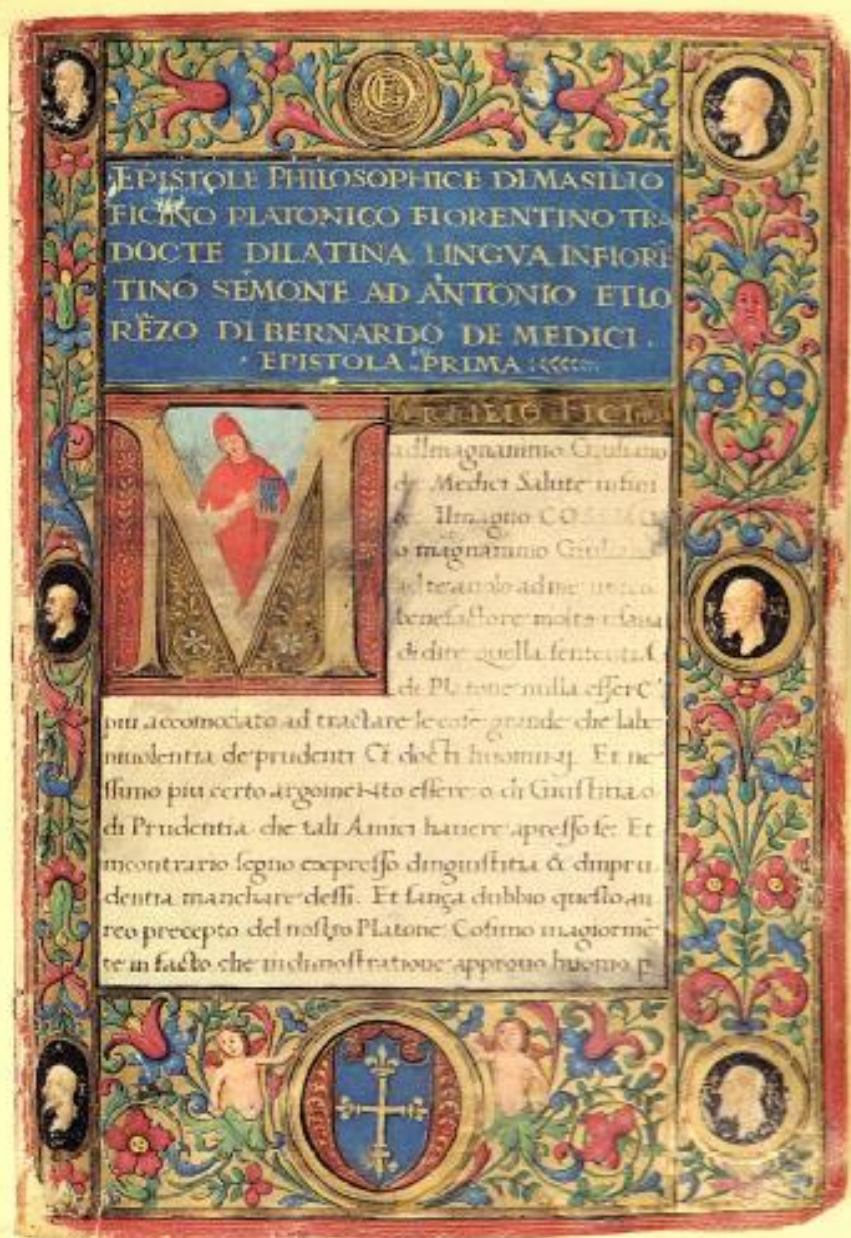 EPISTOLE PHILOSOPHICE DI MASILIO
FICINO PLATONICO FIORENTINO TRA
DOCTE DILATINA LINGVA INFIORE
TINO SEMONE AD ANTONIO ET LO
RĒZO DI BERNARDO DE MEDICI .
· EPISTOLA · PRIMA
M
ARSILIO FICI
adlmagnanimo Giuliano
de Medici Salute infini
Ilmagno COSIMO
o magnanimo Giuliano
ad te auolo ad me
benefactore molte
di dire quella sententia
di Platone nulla esser
piu accomodato ad tractare le cose grande che labe
niuolentia de prudenti Et docti huomini. Et ne
ssuno piu certo argomēto essere o di Giustitia o
di Prudentia che tali Amici hauere apresso se. Et
incontrario segno expresso dingiustitia & dinpru
dentia manchare dessi. Et sança dubbio questo au
reo precepto del nostro Platone Cosimo magiormē
te in facto che in dimostratione approuo huomo p